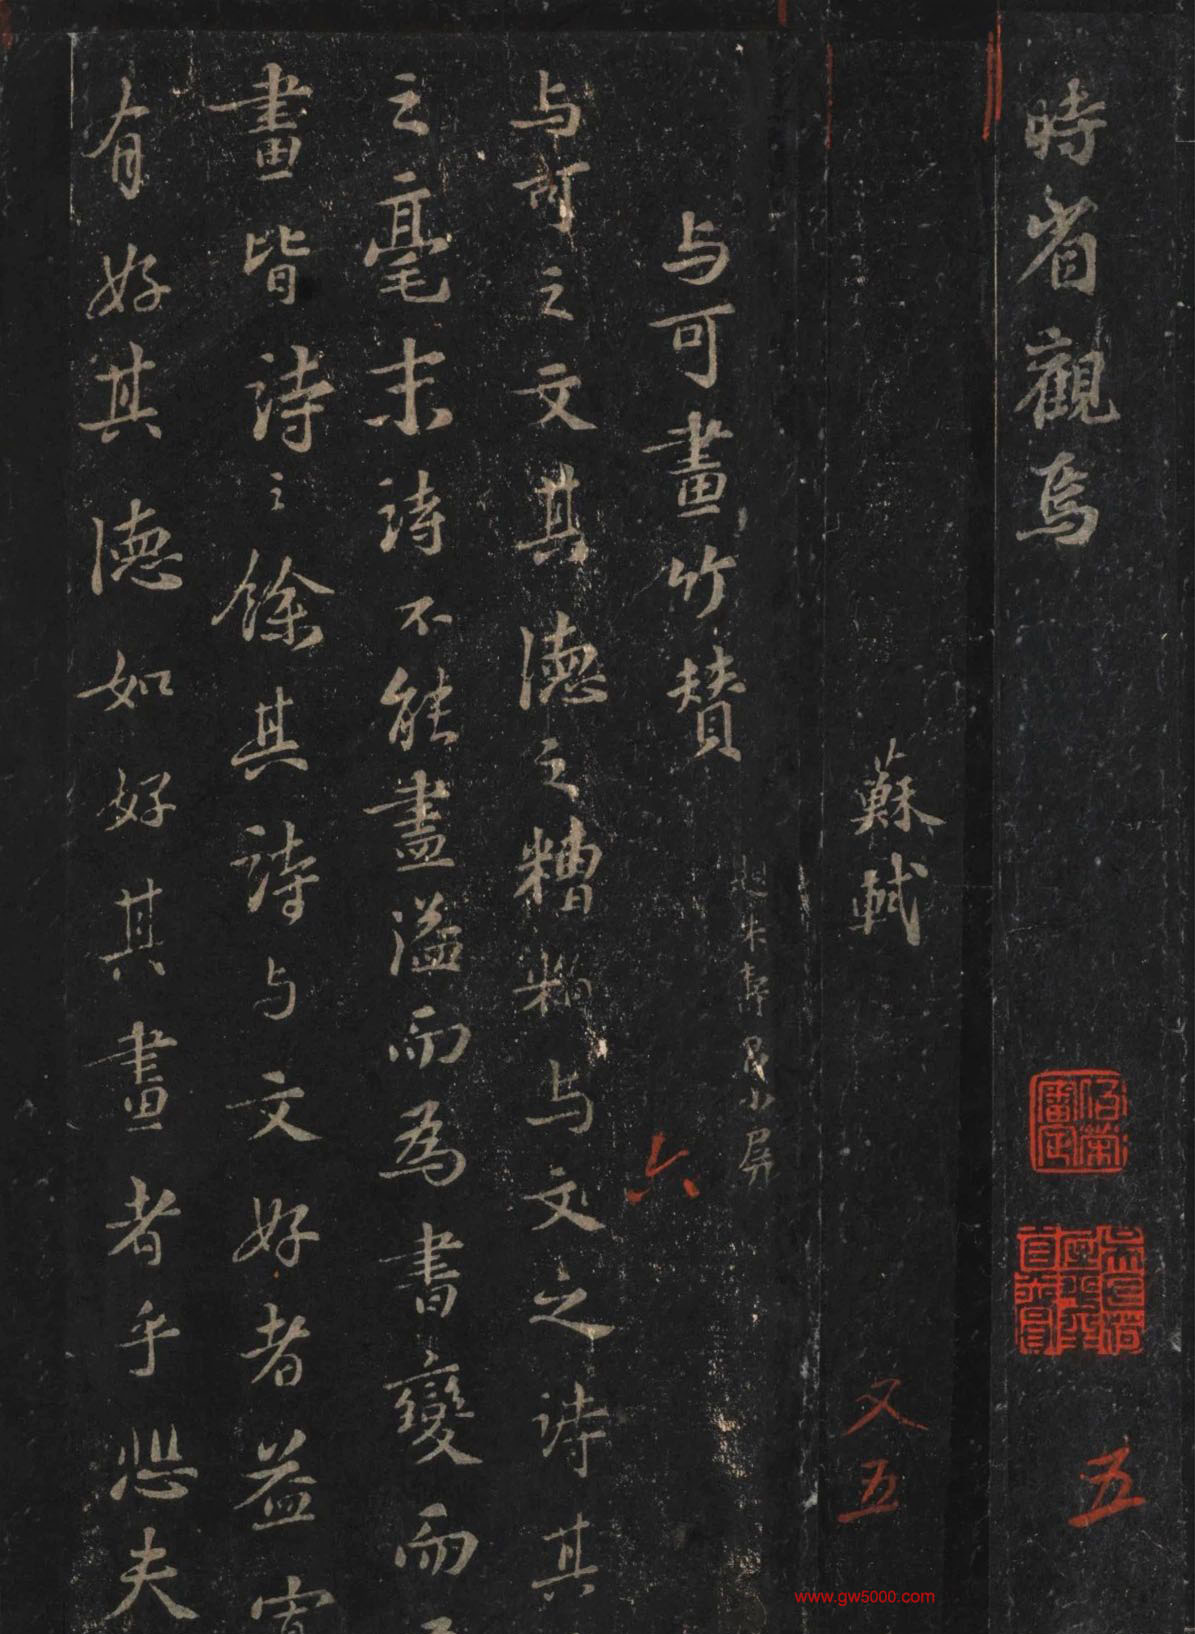 時省觀焉
五
蘇軾
又五
与可畫竹贊
六
与可之文其德之糟粕与文之詩其
之毫末詩不能盡溢而為書變而
畫皆詩之餘其詩与文好者益寡
有好其德如好其畫者乎悲夫
www.gw5000.com